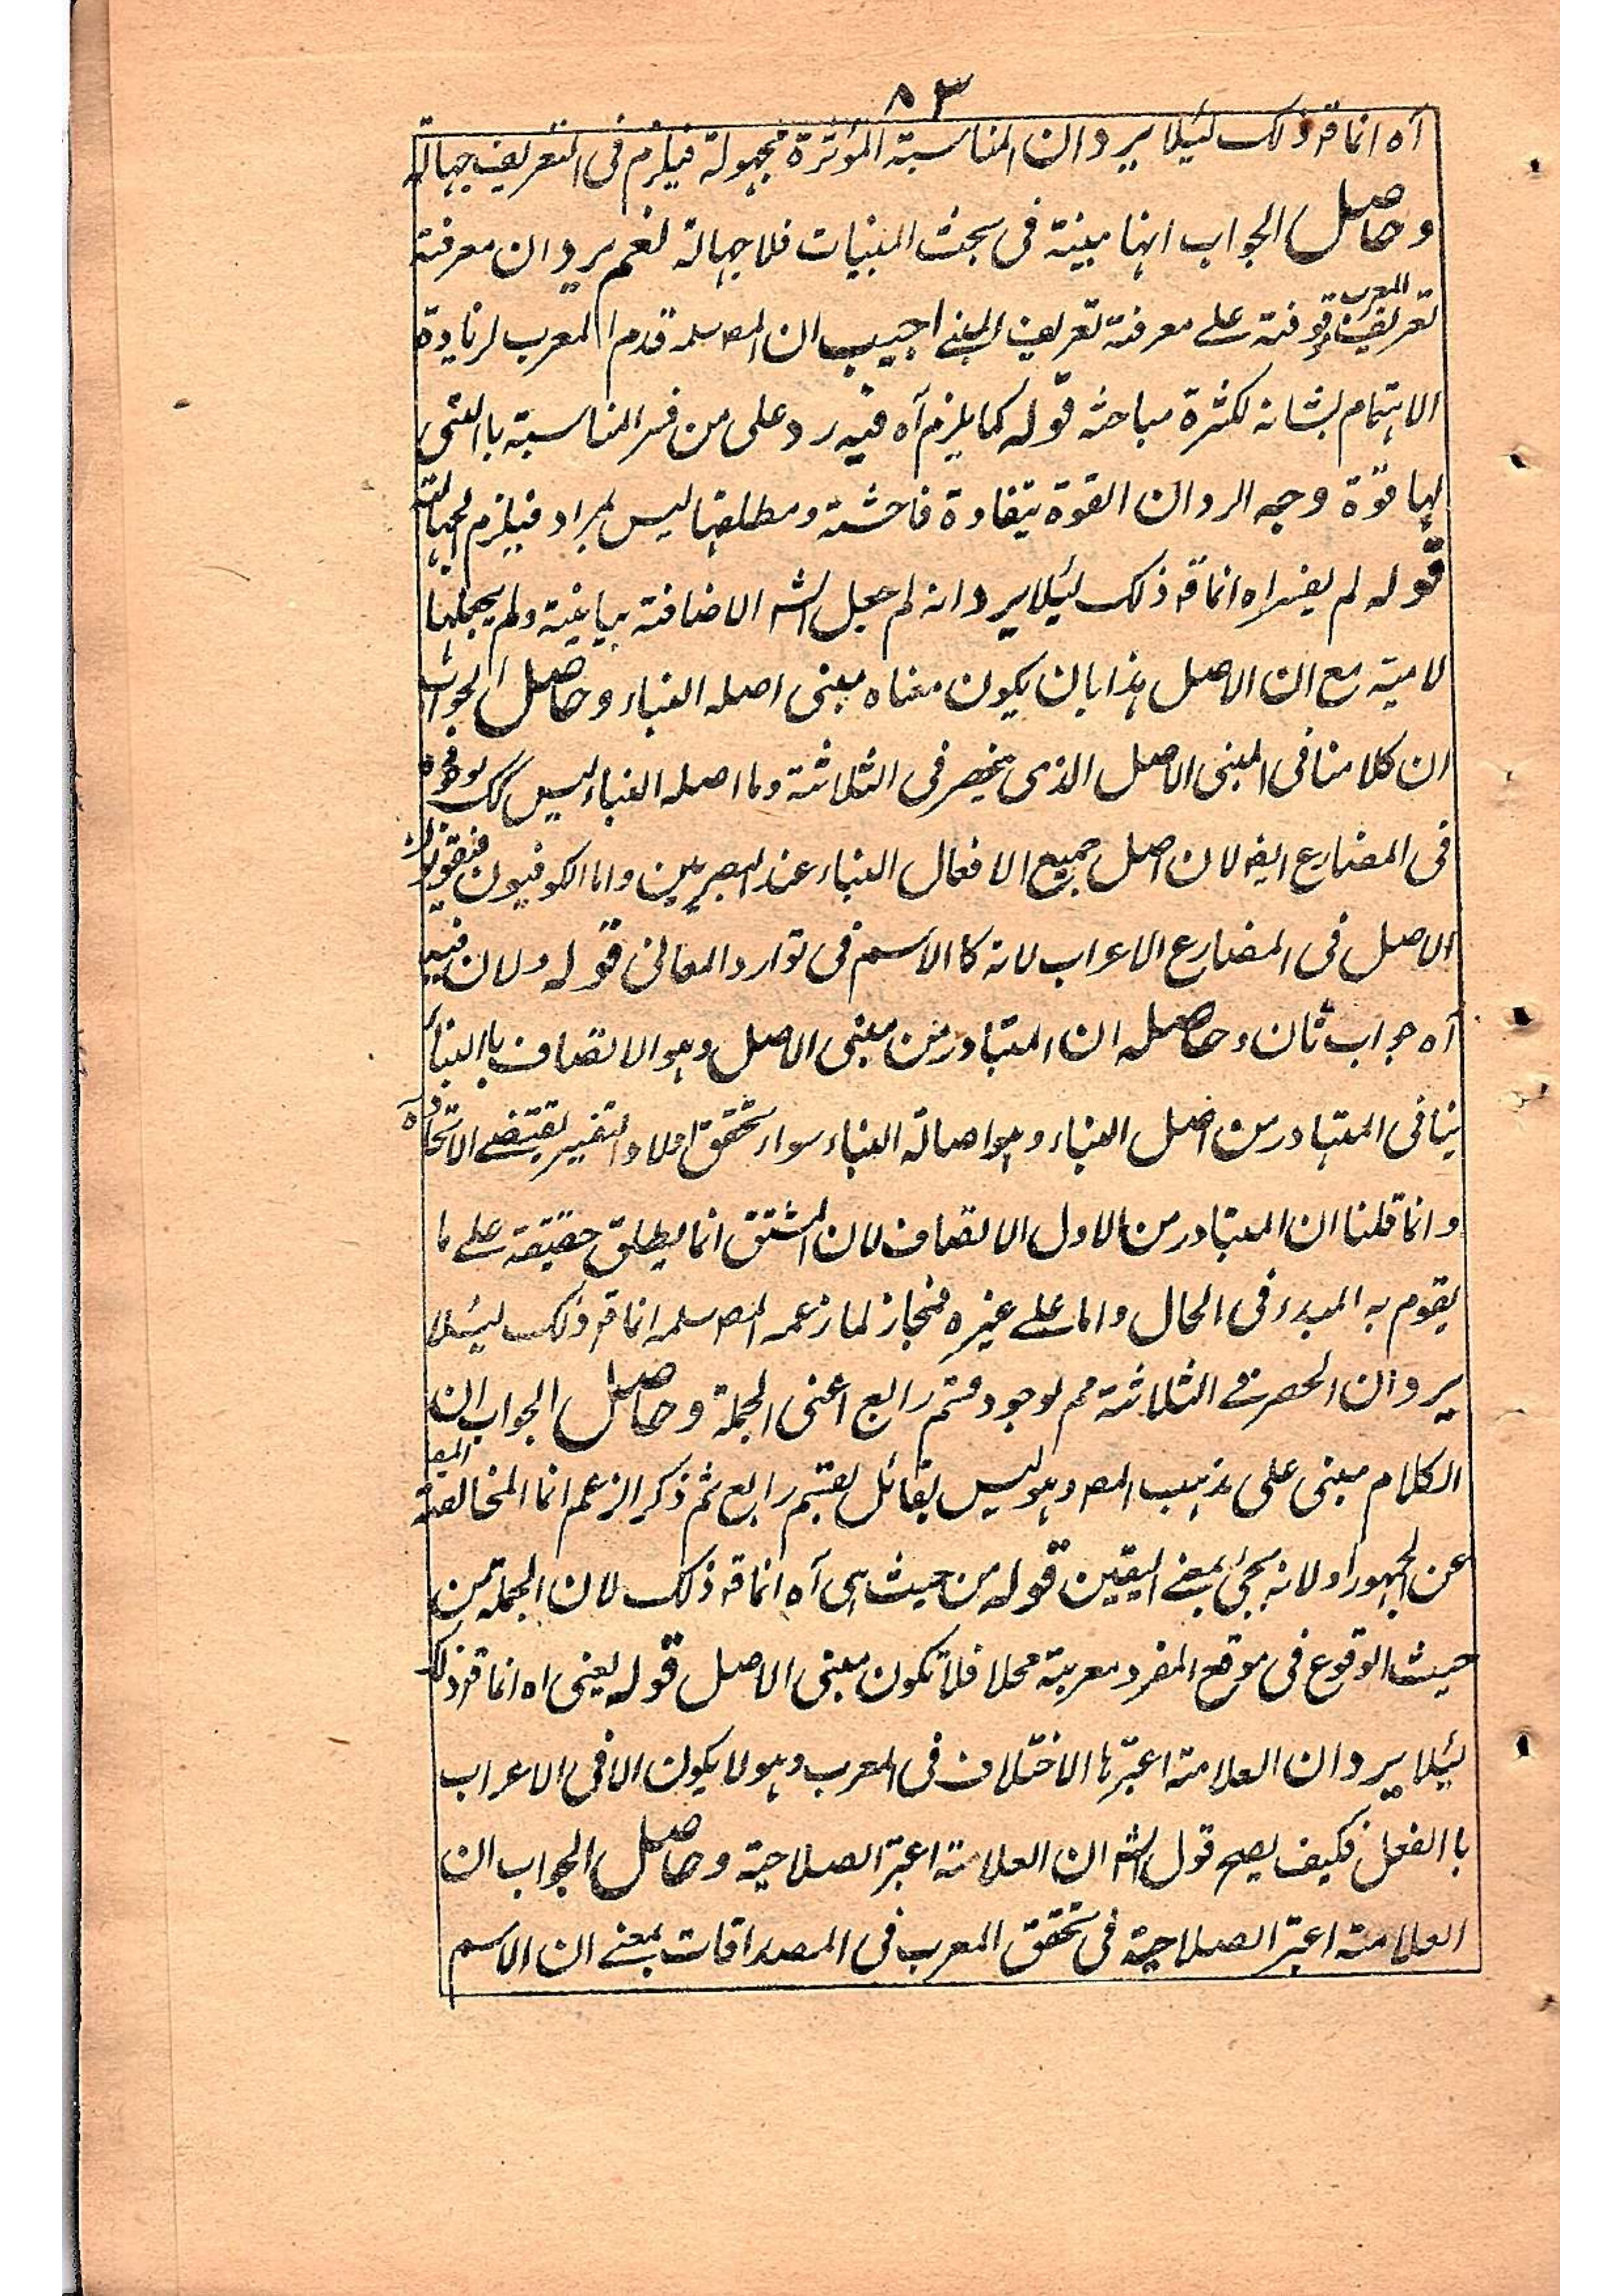 ٨٣
آه انما قہ ذلک لئیلا یرد ان المناسبۃ المؤثرۃ مجہولۃ فیلزم فی التعریف جہالۃ
وحاصل الجواب انہا مبینۃ فی بحث المبنیات فلا جہالۃ نعم یرد ان معرفۃ
تعریف المعرب موقوفۃ علے معرفۃ تعریف المبنے اجیب ان المصہ سلمہ قدم المعرب لزیادۃ
الاہتمام بشانہ لکثرۃ مباحثہ قولہ کما یلزم آہ فیہ رد علی من فسر المناسبۃ باالتی
لہا قوۃ وجہ الرد ان القوۃ یتفاوۃ فاحشۃ ومطلقہا لیس بمراد فیلزم الجہالۃ
قولہ لم یفسراہ انما قہ ذلک لئیلا یرد انہ لم جعل الشہ الاضافۃ بیانیۃ ولم یجعلہا
لامیۃ مع ان الاصل ہذا بان یکون معناہ مبنی اصلہ البناء وحاصل الجواب
ان کلامنا فی المبنی الاصل الذی ینحصر فی الثلاثۃ وما اصلہ البناء لیس کک لوجودہ
فی المضارع ایضہ لان اصل جمیع الافعال البناء عند البصریین واما الکوفیون فیقولون
الاصل فی المضارع الاعراب لانہ کا الاسم فی توارد المعانی قولہ ولان فیہ
آہ جواب ثان وحاصلہ ان المتبادر من مبنی الاصل وہو الاتصاف باالبناء
ینافی المتبادر من اصل البناء وہو اصالۃ البناء سواء تحقق اولا والتفسیر یقتضے الاتحاد
وانما قلنا ان المتبادر من الاول الاتصاف لان المشتق انما یطلق حقیقۃ علے ما
یقوم بہ المبدء فی الحال واما علے غیرہ فمجاز لما زعمہ المصہ سلمہ انما قہ ذلک لیئلا
یرد ان الحصر فے الثلاثۃ مم لوجود قسم رابع اعنی الجملۃ وحاصل الجواب ان
الکلام مبنی علی مذہب المصہ وہو لیس بقائل بقسم رابع ثم ذکر الزعم انما المخالفۃ المصہ
عن الجہور او لانہ یجئ بمعنے الیقین قولہ من حیث ہی آہ انما قہ ذلک لان الجملۃ من
حیث الوقوع فی موقع المفرد معربۃ محلا فلا تکون مبنی الاصل قولہ یعنی اہ انما قہ ذلک
لیئلا یرد ان العلامۃ اعتبر ہا الاختلاف فی المعرب وہو لا یکون الا فی الاعراب
باالفعل فکیف یصح قول الشہ ان العلامۃ اعتبر الصلاحیۃ وحاصل الجواب ان
العلامۃ اعتبر الصلاحیۃ فی تحقق المعرب فی المصداقات بمعنے ان الاسم